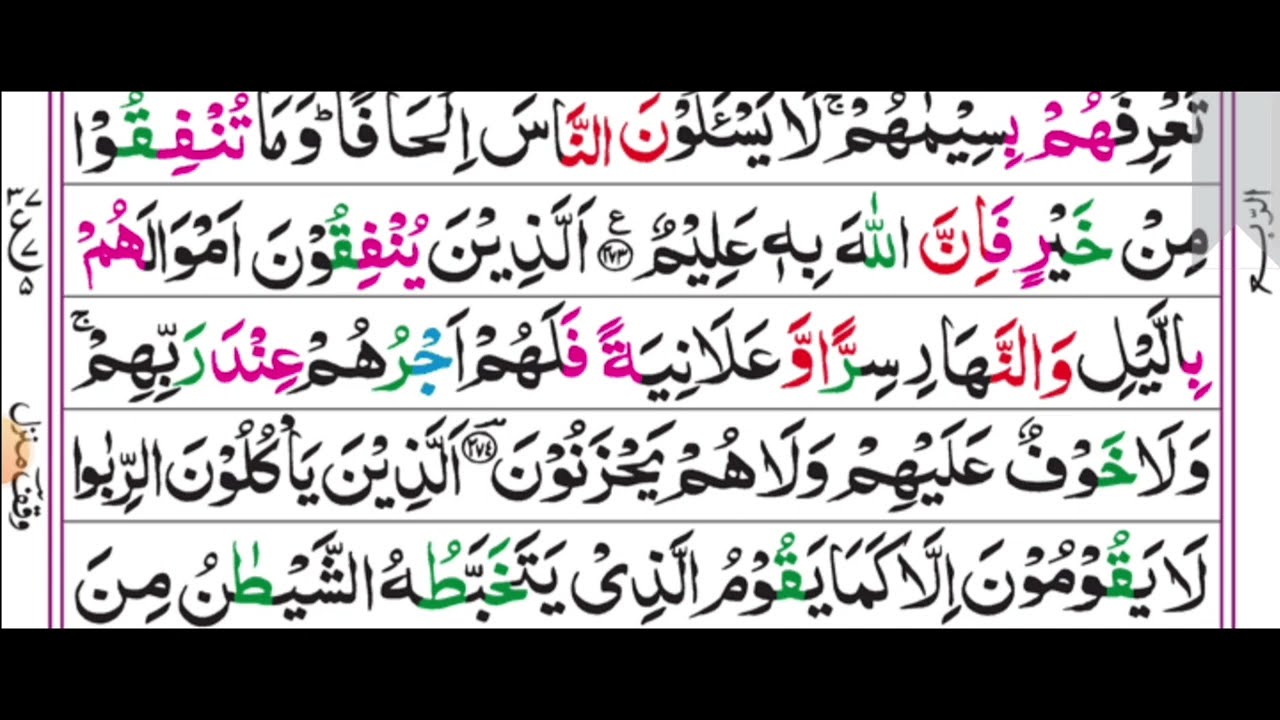 تَعْرِفُهُمْ بِسِيْمٰهُمْ ۚ لَا يَسْـَٔلُوْنَ النَّاسَ اِلْحَافًا ؕ وَمَا تُنْفِقُوْا
مِنْ خَيْرٍ فَاِنَّ اللّٰهَ بِهٖ عَلِيْمٌ ﴿۲۷۳﴾ ع اَلَّذِيْنَ يُنْفِقُوْنَ اَمْوَالَهُمْ
بِالَّيْلِ وَالنَّهَارِ سِرًّا وَّ عَلَانِيَةً فَلَهُمْ اَجْرُهُمْ عِنْدَ رَبِّهِمْ ۚ
وَلَا خَوْفٌ عَلَيْهِمْ وَلَا هُمْ يَحْزَنُوْنَ ﴿۲۷۴﴾ اَلَّذِيْنَ يَاْكُلُوْنَ الرِّبٰوا
لَا يَقُوْمُوْنَ اِلَّا كَمَا يَقُوْمُ الَّذِيْ يَتَخَبَّطُهُ الشَّيْطٰنُ مِنَ
ع
۵
وقف منزل